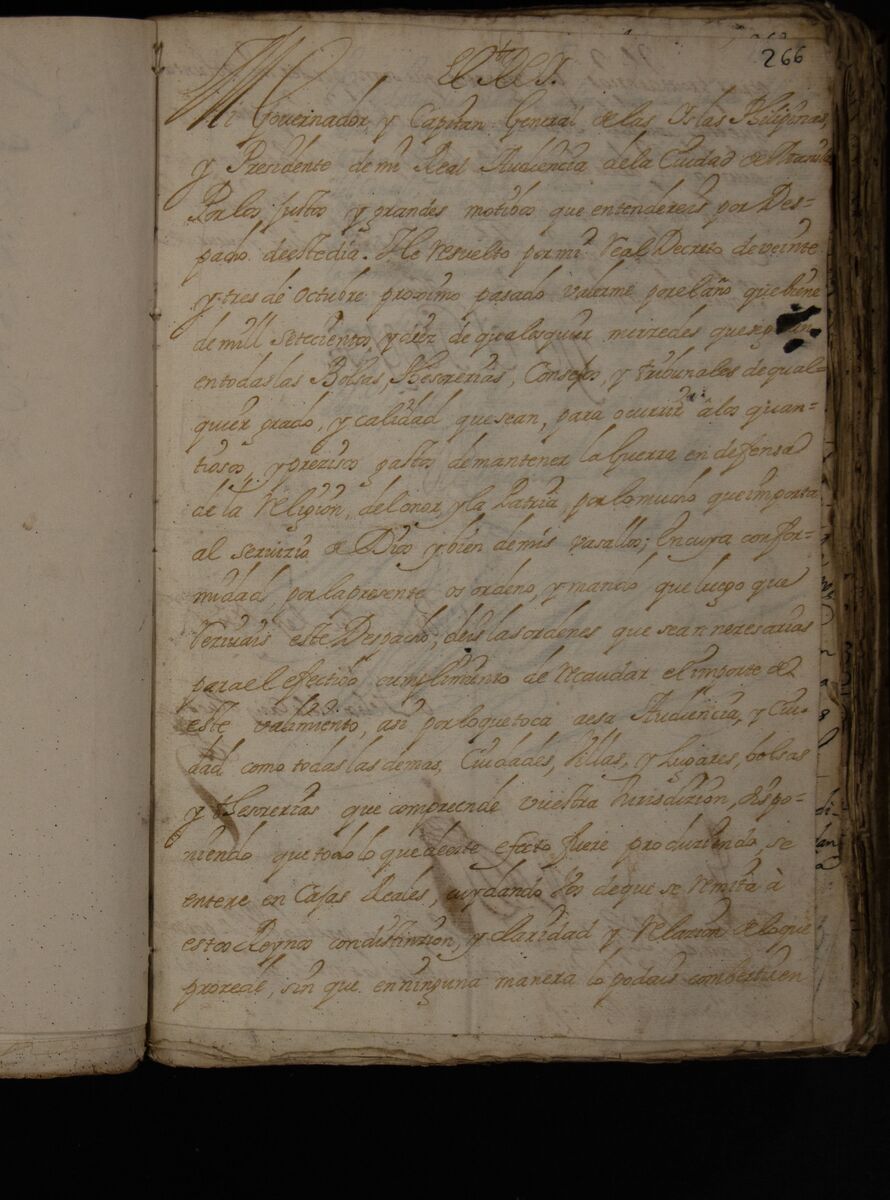 266
El Rey.
Mi Governador, y Capitan General de las Islas Philipinas,
y Presidente de mi Real Audiencia de la Ciudad de Manila
Por los justos y grandes motibos que entendereis por Des=
pacho de este dia. He resuelto por mi Real Decreto de veinte
y tres de Octubre proximo pasado valerme por el año que biene
de mill setecientos, y diez de qualesquier merzedes que
en todas las Bolsas, Thesorerias, Consejos, y tribunales de qual=
quier grado, y calidad que sean, para ocurrir a los quan=
tiosos, y prezisos gastos de mantener la Guerra en defensa
de la Religion, del onor, y la Patria, por lo mucho que importa
al servizio de Dios y bien de mis vasallos; En cuya confor=
midad, por la presente os ordeno, y mando que luego que
Reziuais este Despacho, deis las ordenes que sean nezesarias
para el efectibo cumplimiento de recaudar el importe de
este valimiento, asi por lo que toca a esa Audiencia, y Ciu=
dad como todas las demas, Ciudades, Villas, y Lugares, bolsas
y thesorerias que compreende vuestra Jurisdizion, dispo=
niendo que todo lo que de este efecto fuere produziendo, se
entere en Cajas Reales, cuydando Vos de que se remita à
estos Reynos con distinzion, y claridad y relazion de lo que
prozede, sin que en ninguna manera lo podais combertir en